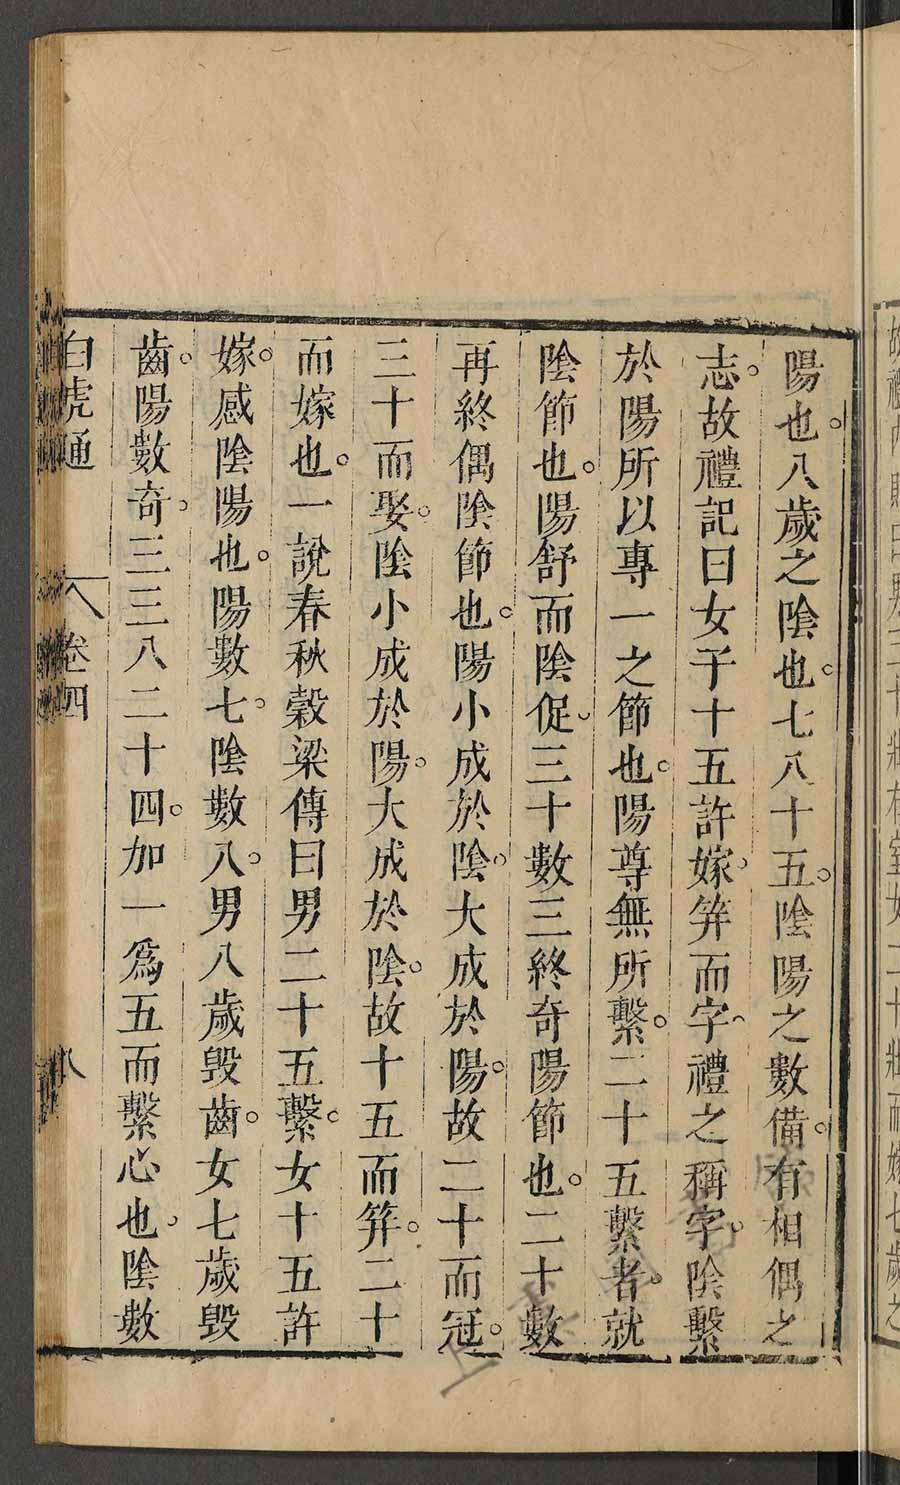 陽也。八歲之陰也。七八十五。陰陽之數備。有相偶之
志。故禮記曰女子十五許嫁。笄而字。禮之稱字。陰繫
於陽所以專一之節也。陽尊無所繫。二十五繫者。就
陰節也。陽舒而陰促。三十數三終奇陽節也。二十數
再終偶陰節也。陽小成於陰。大成於陽。故二十而冠。
三十而娶。陰小成於陽。大成於陰。故十五而筓。二十
而嫁也。一說春秋穀梁傳曰男二十五繫。女十五許
嫁。感陰陽也。陽數七。陰數八。男八歲毀齒。女七歲毀
齒。陽數奇。三三八二十四。加一爲五而繫心也。陰數
白虎通 卷四 八